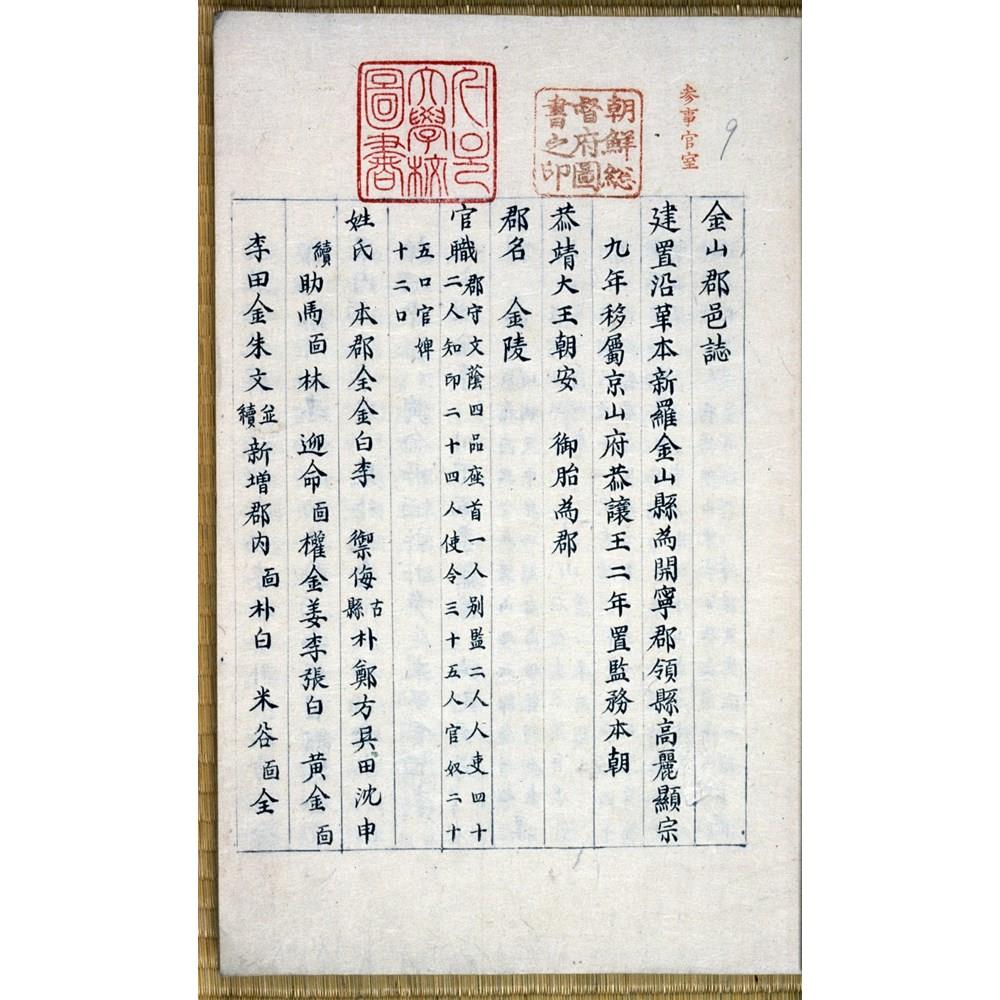 参事官室
9
朝鮮総
督府圖
書之印
서울
大學校
圖書
金山郡邑誌
建置沿革本新羅金山縣為開寧郡領縣高麗顯宗
九年移屬京山府恭讓王二年置監務本朝
恭靖大王朝安 御胎為郡
郡名 金陵
官職郡守文蔭四品座首一人別監二人人吏四十
二人知印二十四人使令三十五人官奴二十
五口官婢
十二口
姓氏 本郡全金白李 禦侮古縣朴鄭方具田沈申
續助馬面林 迎命面權金姜李張白 黃金面
李田金朱文並續新增郡内面朴白 米谷面全